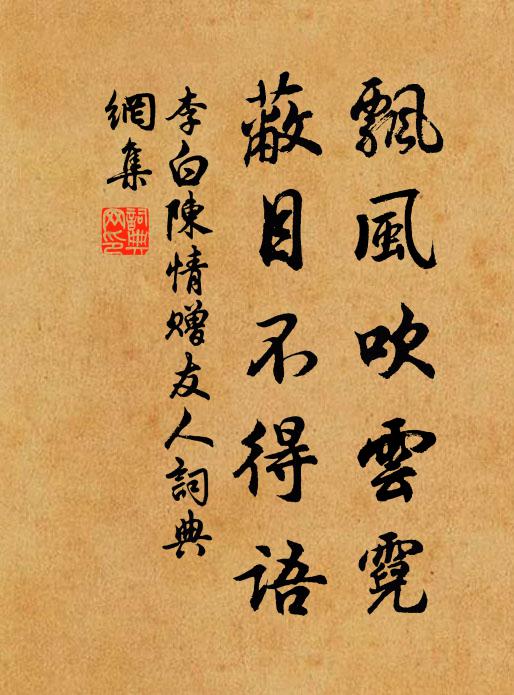 飄風吹雲霓
蔽目不得語
李白陳情贈友人詞典
網集
詞典
网印